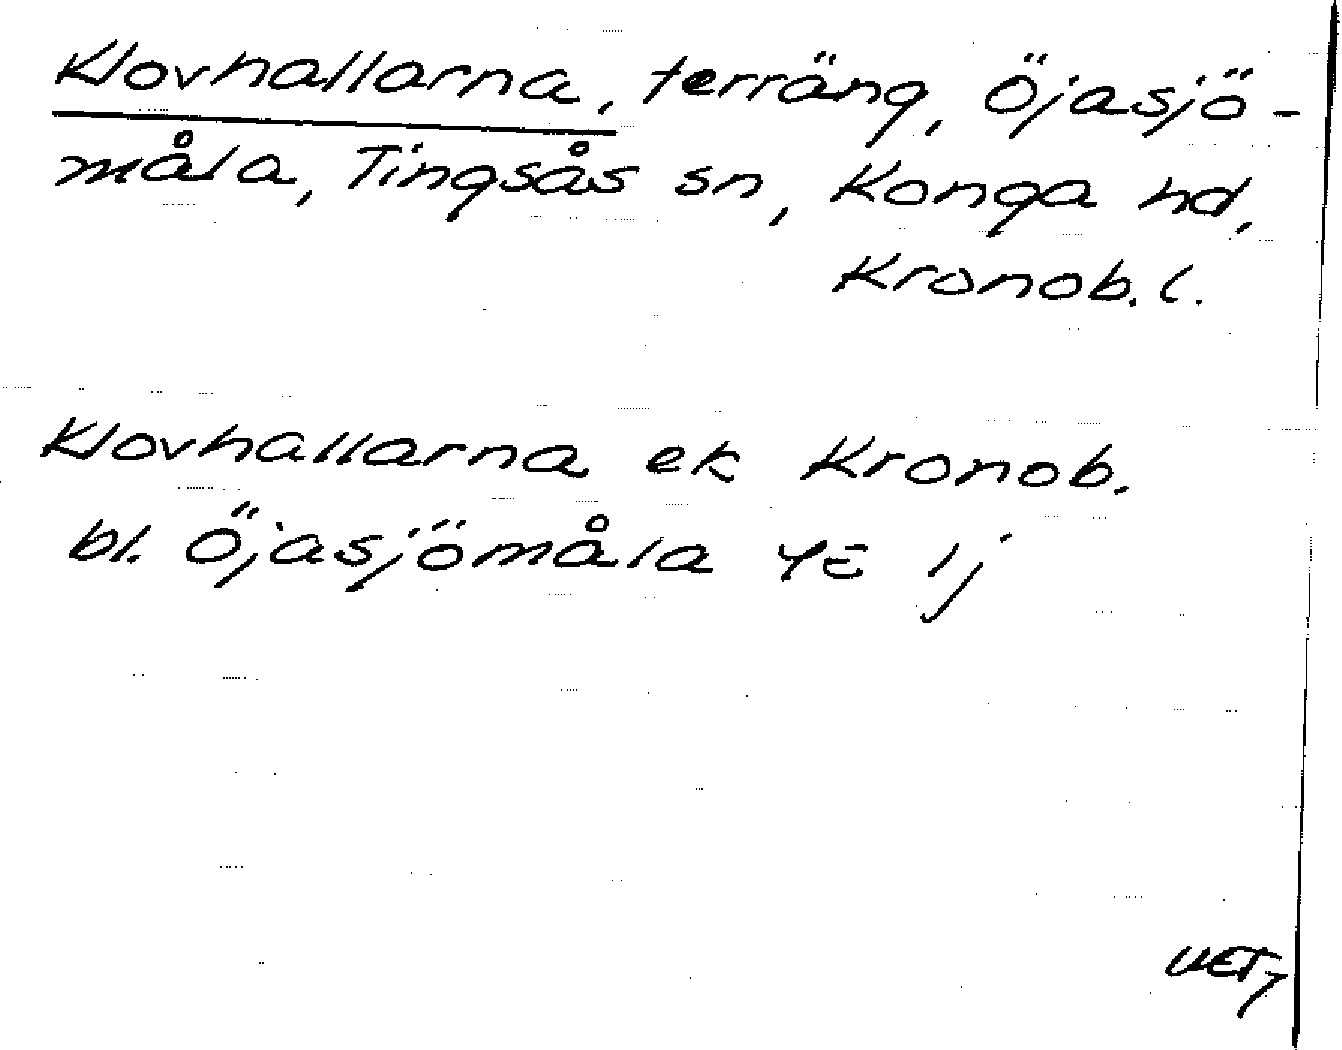 Klovhallarna, terräng, Öjasjö-
måla, Tingsås sn, Konga hd,
Kronob. l.
Klovhallarna ek Kronob.
bl. Öjasjömåla 4E 1j